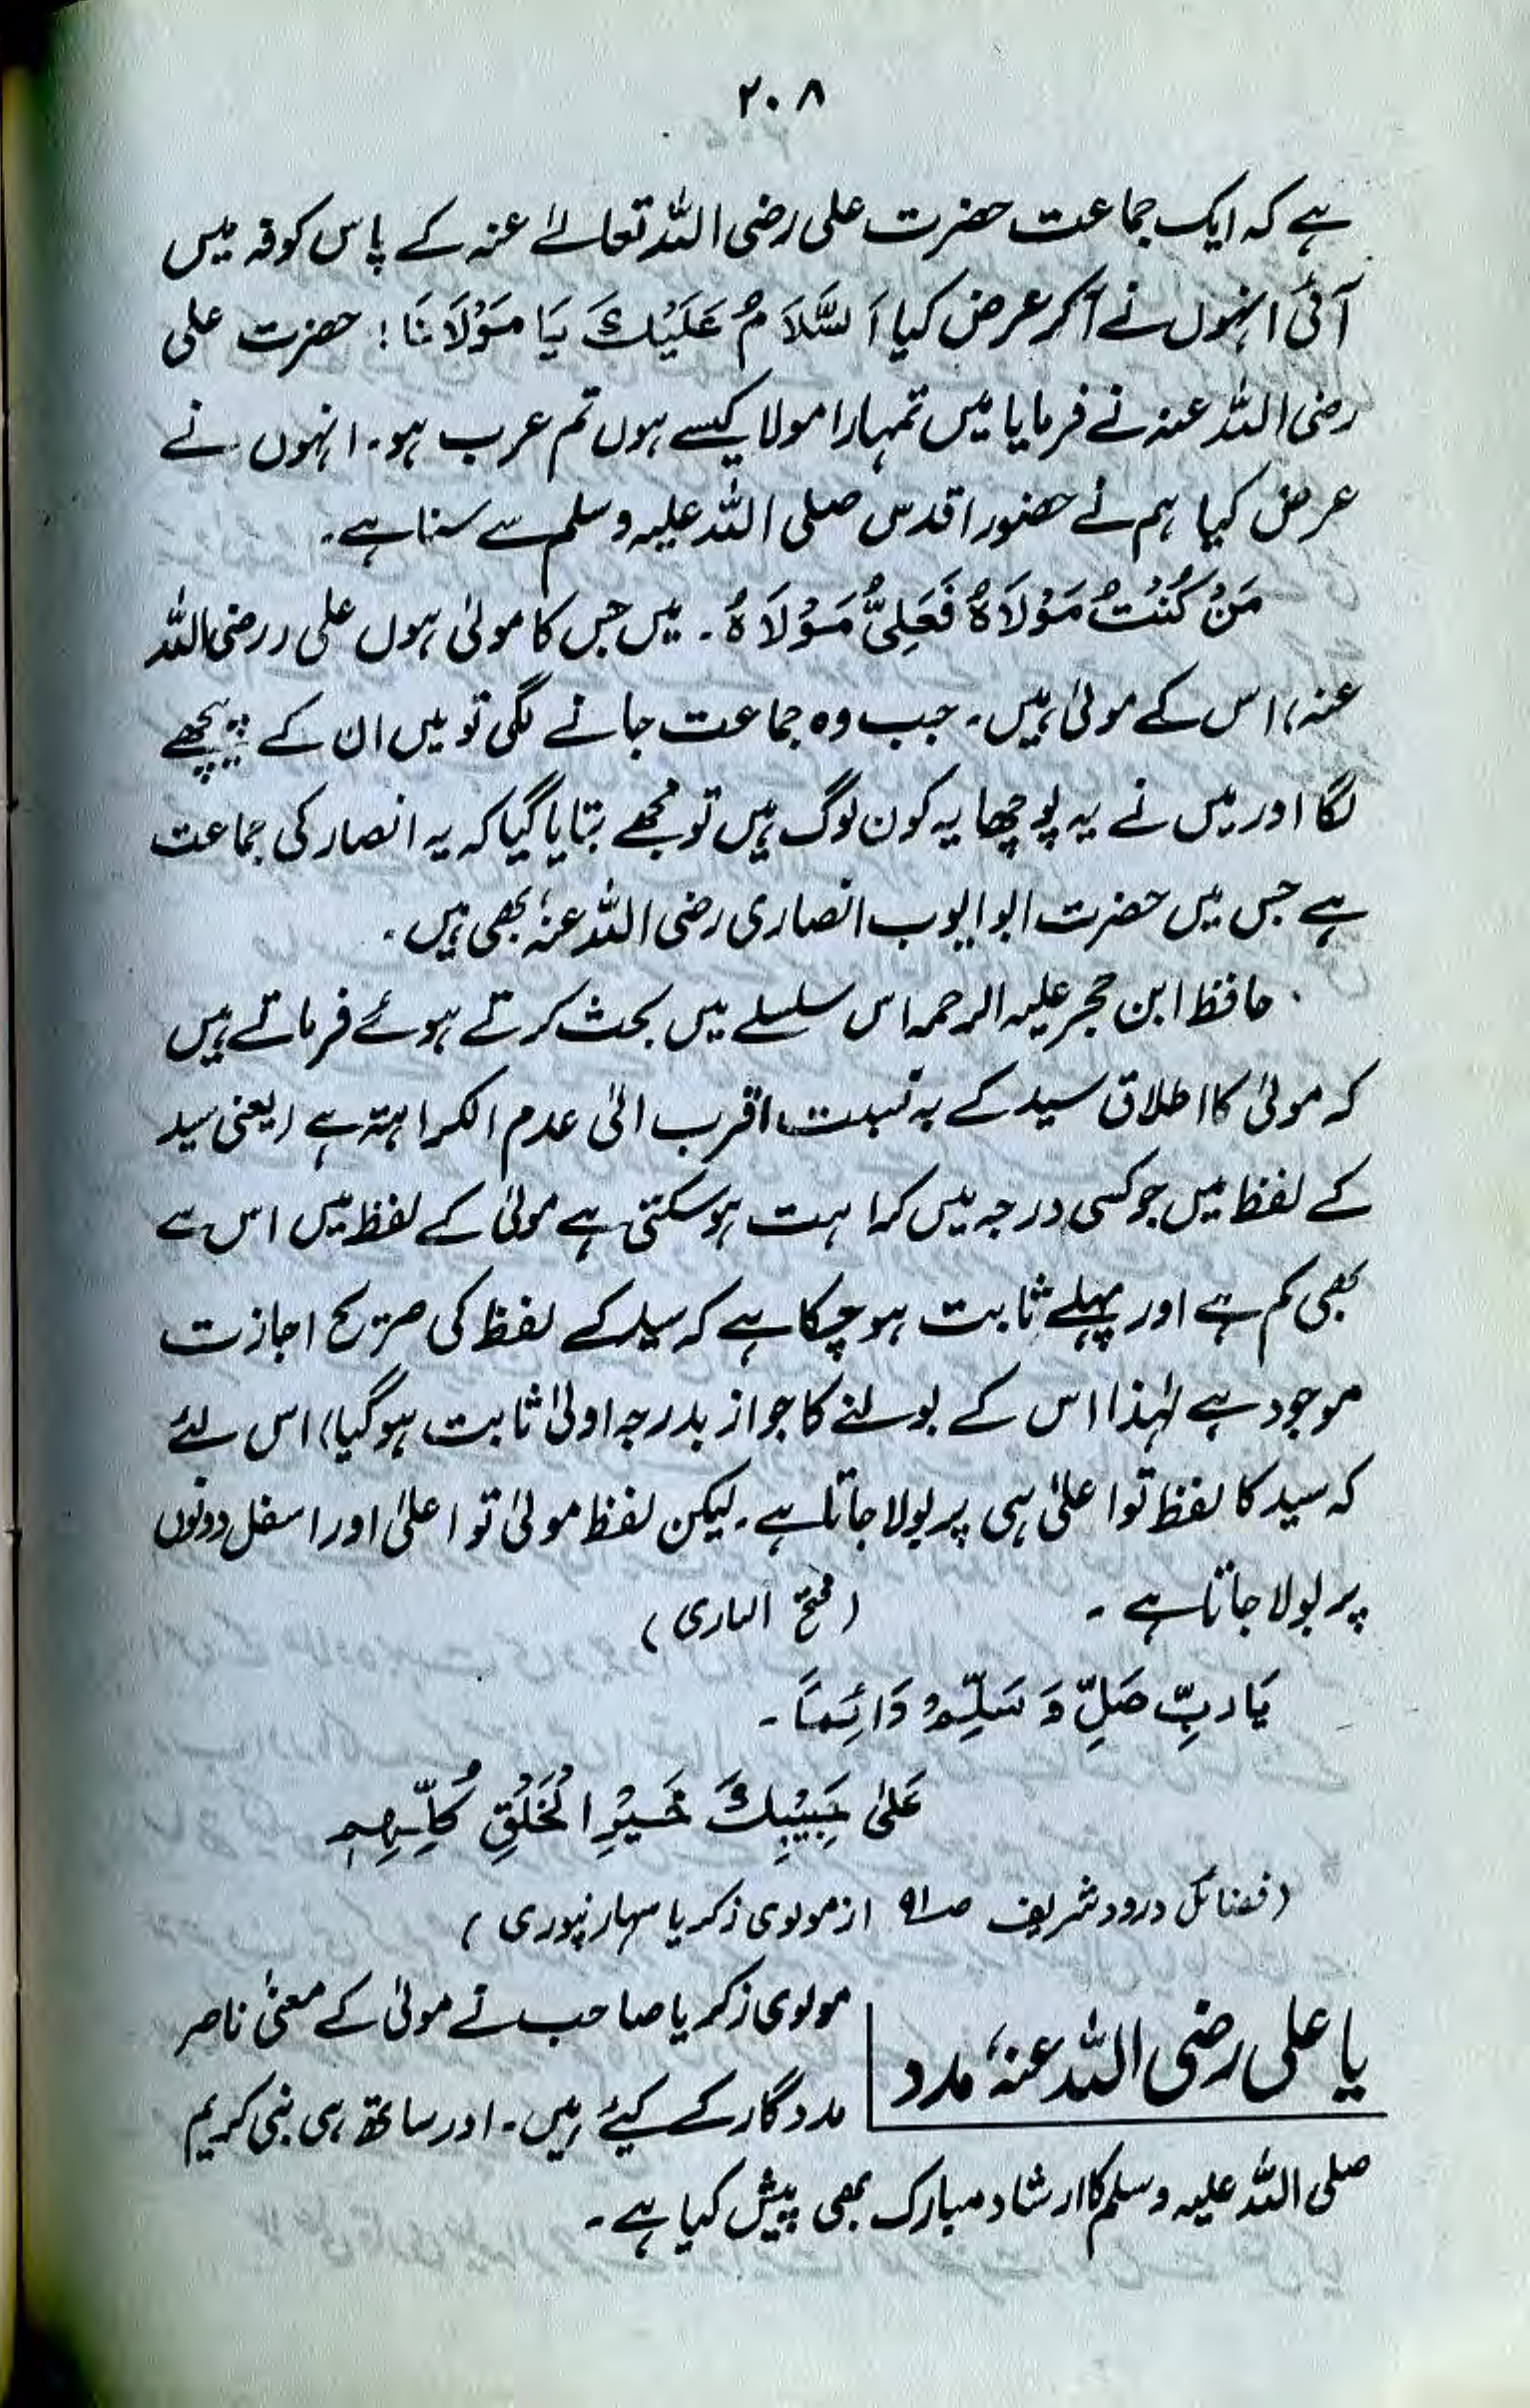 ۲۰۸
ہے کہ ایک جماعت حضرت علی رضی اللہ تعالےٰ عنہ کے پاس کوفہ میں
آئی انہوں نے آکر عرض کیا اَلسَّلَامُ عَلَيْكَ يَا مَوْلَانَا؛ حضرت علی
رضی اللہ عنہ نے فرمایا میں تمہارا مولا کیسے ہوں تم عرب ہو۔ انہوں نے
عرض کیا ہم نے حضور اقدس صلی اللہ علیہ وسلم سے سنا ہے۔
مَنْ كُنْتُ مَوْلَاهُ فَعَلِيٌّ مَوْلَاهُ۔ میں جس کا مولیٰ ہوں علی (رضی اللہ
عنہ) اس کے مولیٰ ہیں۔ جب وہ جماعت جانے لگی تو میں ان کے پیچھے
لگا اور میں نے یہ پوچھا یہ کون لوگ ہیں تو مجھے بتایا گیا کہ یہ انصار کی جماعت
ہے جس میں حضرت ابو ایوب انصاری رضی اللہ عنہٗ بھی ہیں۔
حافظ ابن حجر علیہ الرحمہ اس سلسلے میں بحث کرتے ہوئے فرماتے ہیں
کہ مولیٰ کا اطلاق سید کے بہ نسبت اقرب الیٰ عدم الکراہتہ ہے (یعنی سید
کے لفظ میں جو کسی درجہ میں کراہت ہوسکتی ہے مولیٰ کے لفظ میں اس سے
بھی کم ہے اور پہلے ثابت ہو چکا ہے کہ سید کے لفظ کی صریح اجازت
موجود ہے لہٰذا اس کے بولنے کا جواز بدرجہ اولیٰ ثابت ہوگیا) اس لئے
کہ سید کا لفظ تو اعلیٰ ہی پر بولا جاتا ہے۔ لیکن لفظ مولیٰ تو اعلیٰ اور اسفل دونوں
پر بولا جاتا ہے۔ (فتح الباری)
يَا رَبِّ صَلِّ وَ سَلِّمْ دَائِمًا۔
عَلىٰ حَبِيْبِكَ خَيْرِ الْخَلْقِ كُلِّهِمِ
(فضائل درود شریف صـ۹۱ از مولوی زکریا سہارنپوری)
یا علی رضی اللہ عنہٗ مدد
مولوی زکریا صاحب نے مولیٰ کے معنیٰ ناصر
مددگار کے کیئے ہیں۔ اور ساتھ ہی نبی کریم
صلی اللہ علیہ وسلم کا ارشاد مبارک بھی پیش کیا ہے۔